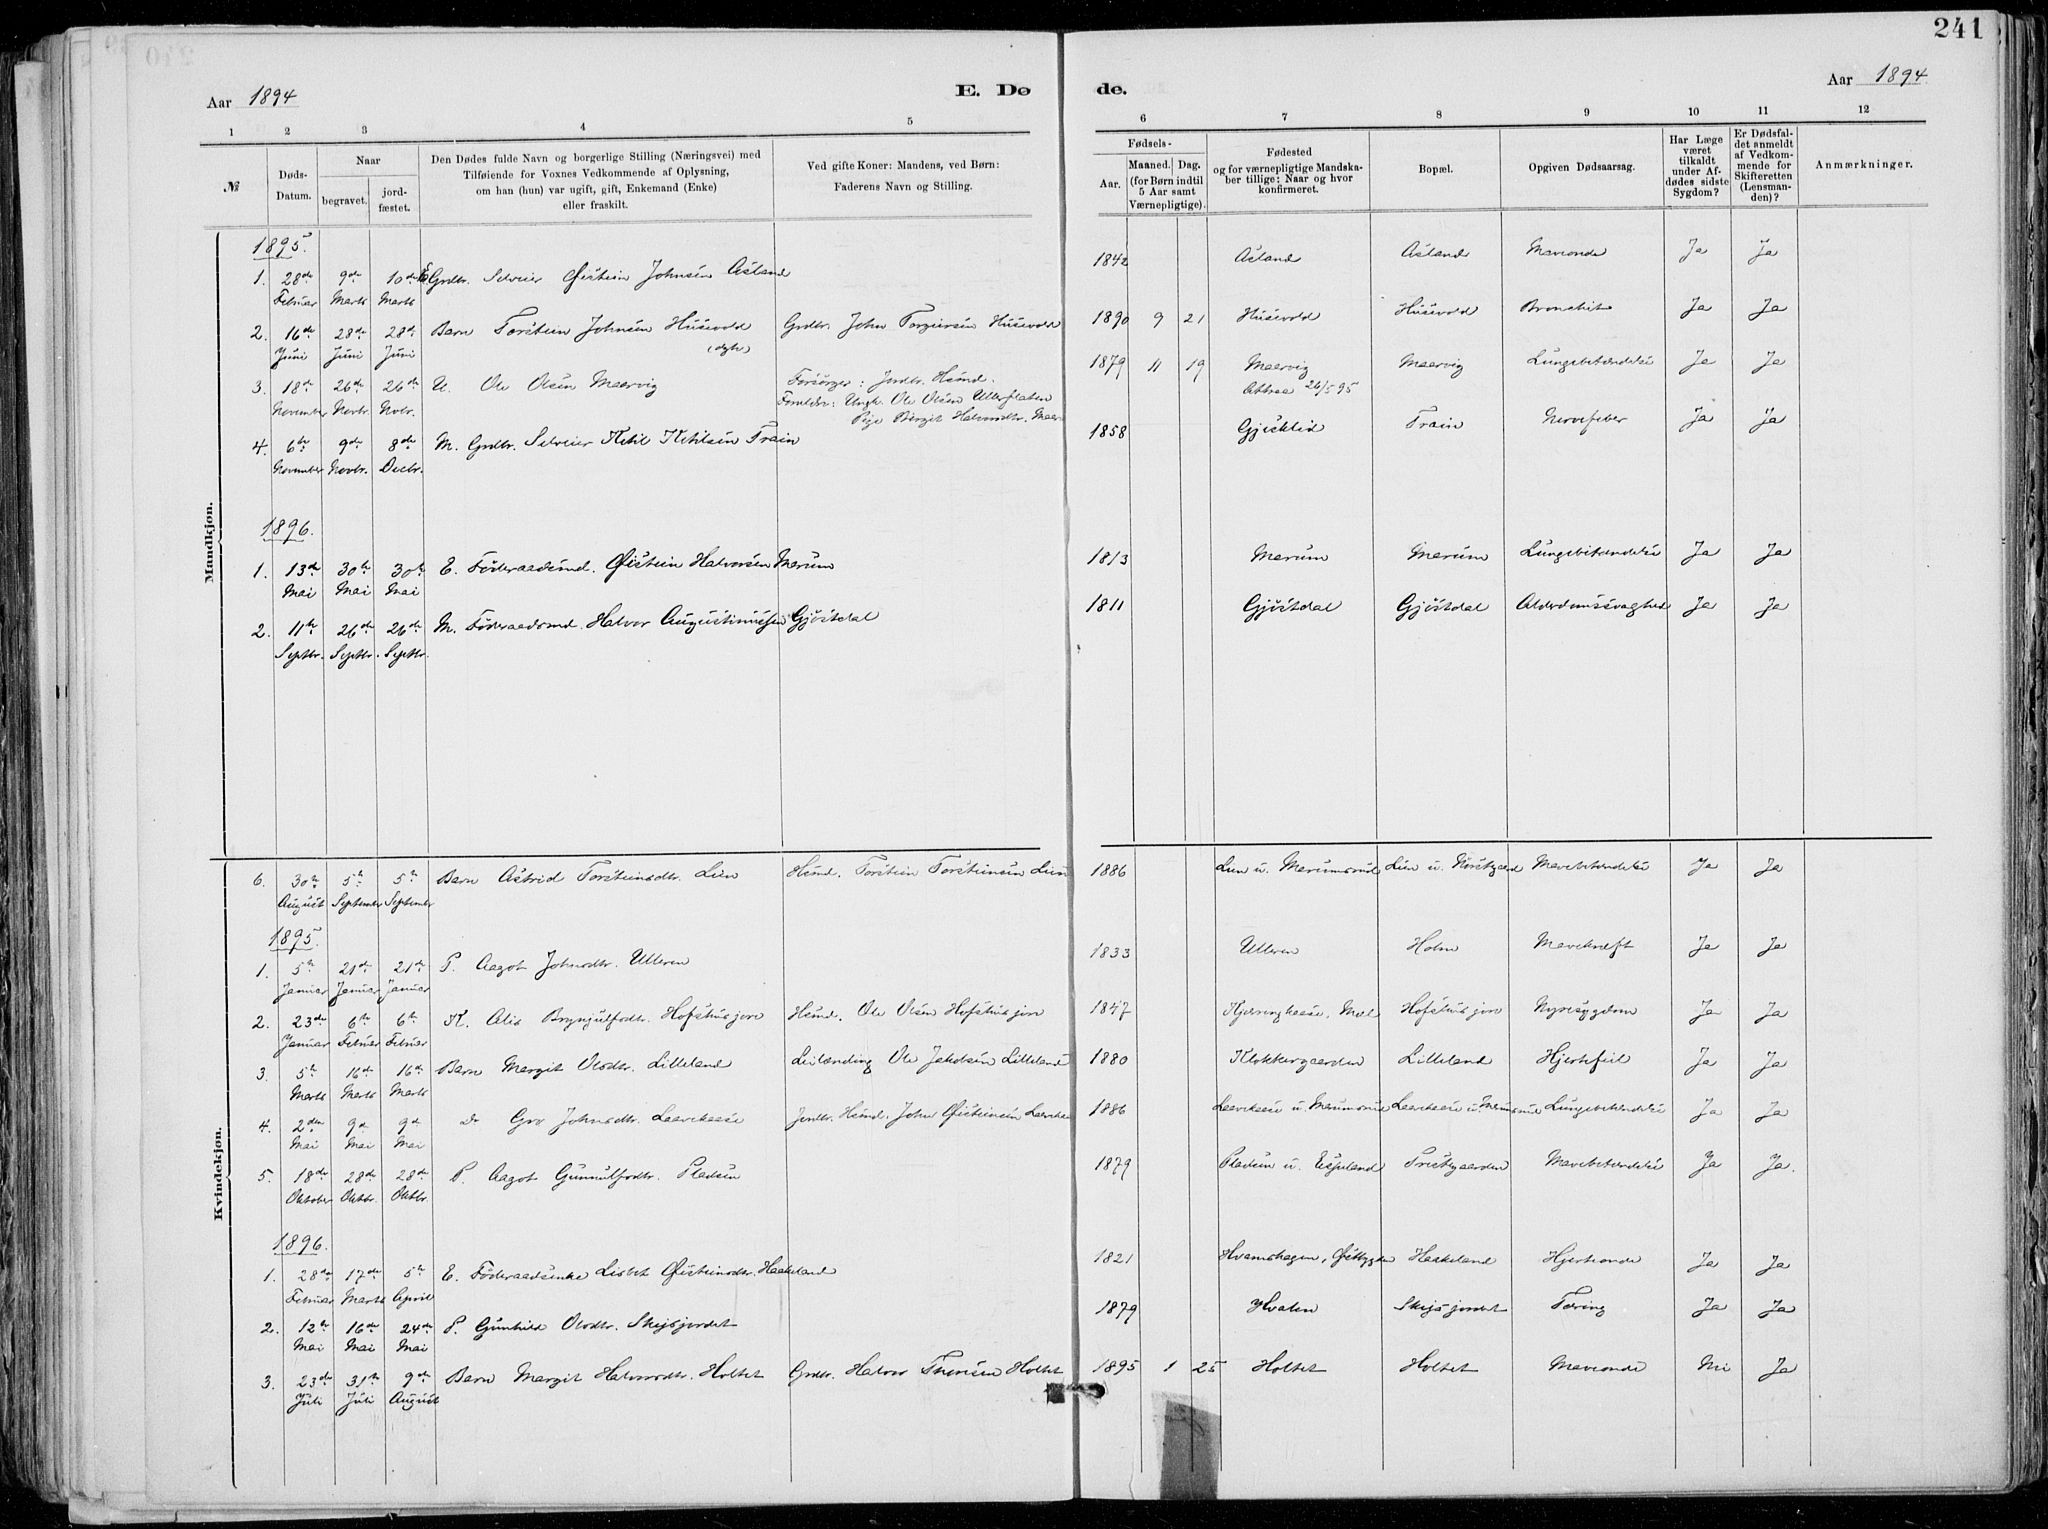 241
Aar 1894 E. Dø de. Aar 1894
1 2 3 4 5 6 7 8 9 10 11 12
№ Døds-Datum. Naar begravet. jordfæstet. Den Dødes fulde Navn og borgerlige Stilling (Næringsvei) med Tilføiende for Voxnes Vedkommende af Oplysning, om han (hun) var ugift, gift, Enkemand (Enke) eller fraskilt. Ved gifte Koner: Mandens, ved Børn: Faderens Navn og Stilling. Fødsels- Aar. Maaned. Dag. (for Børn indtil 5 Aar samt Værnepligtige). Fødested og for værnepligtige Mandskaber tillige: Naar og hvor konfirmeret. Bopæl. Opgiven Dødsaarsag. Har Læge været tilkaldt under Afdødes sidste Sygdom? Er Dødsfaldet anmeldt af Vedkommende for Skifteretten (Lensmanden)? Anmærkninger.
Mandkjøn.
1895.
1. 28de Februar 9de Marts 10de Marts E. Grdbr. Selveier Øistein Johnsen Asland 1842 Asland Asland Maveonde Ja Ja
2. 16de Juni 28de Juni 28de Juni Barn Torstein Johnsen Husevold Grdbr. John Torgiersen Husevold 1890 9 21 Husevold Husevold Bronchit Ja Ja
3. 18de November 26de Novbr. 26de Novbr. U. Ole Olsen Maarvig Forsørger: Jordbr. Hsmd. 1879 11 19 Maarvig Maarvig Lungebetændelse Ja Ja
Forældre: Ungk. Ole Olsen Ullerflaten 26/5 95
Pige Birgit Halvorsdtr. Maar
4. 6te November 9de Novbr. 8de Decbr. M. Grdbr. Selveier Ketil Ketilsen Train 1858 Træin Nervefeber Ja Ja
1896.
1. 13de Mai 30te Mai 30te Mai E. Føderaadsmd. Øistein Halvorsen Mærum 1813 Mærum Mærum Lungebetændelse Ja Ja
2. 11te Septbr. 26de Septbr. 26de Septbr. M. Føderaadsmd. Halvor Augustinussen Gjøstdal 1811 Gjøstdal Gjøstdal Alderdomssvaghed Ja Ja
Kvindekjøn.
6. 30te August 5te September 5te September Barn Astrid Torsteinsdtr. Lien Hsmd. Torstein Torsteinsen Lien 1886 Lien u. Mærumsmd Lien u. Mavebetændelse Ja Ja
1895.
1. 5te Januar 21de Januar 21de Januar P. Aagot Johnsdtr. Ulleren 1833 Ulleren Holm Mavekræft Ja Ja
2. 23de Januar 6te Februar 6te Februar K. Alis Brynjulfsdtr. Hofshusjore Hsmd. Ole Olsen Hofshusjore 1847 Hofshusjore Nyresygdom Ja Ja
3. 5te Marts 16de Marts 16de Marts Barn Margit Olsdtr. Lilleland Leilænding Ole Jakobsen Lilleland 1880 Klokkergaarden Lilleland Hjertefeil Ja Ja
4. 2den Mai 9de Mai 9de Mai Do Gro Johnsdtr. Laavekaase Jordbr. Hsmd. John Øisteinsen 1886 Laavekaase u. Laavekaase u. Lungebetændelse Ja Ja
5. 18de Oktober 28de Oktbr. 28de Oktbr. P. Aagot Gunnulfsdtr. Pladsen 1879 Pladsen u. Espeland Præstgaarden Mavebetændelse Ja Ja.
1896.
1. 28de Februar 17de Marts 5te April E. Føderaadsenke Lisbet Øisteinsdtr. Haakeland 1821 Hvamshagen, Østbygden Haakeland Hjerteonde Ja Ja
2. 12te Mai 16de Mai 24de Mai P. Gunhild Olsdtr. Skeisjordet 1879 Hvalen Skeisjordet Tæring Ja Ja
3. 23de Juli 31te Juli 9de August Barn Margit Halvorsdtr. Holtet Grdbr. Halvor Thoresen Holtet 1895 1 25 Holtet Holtet Maveonde Nei Ja